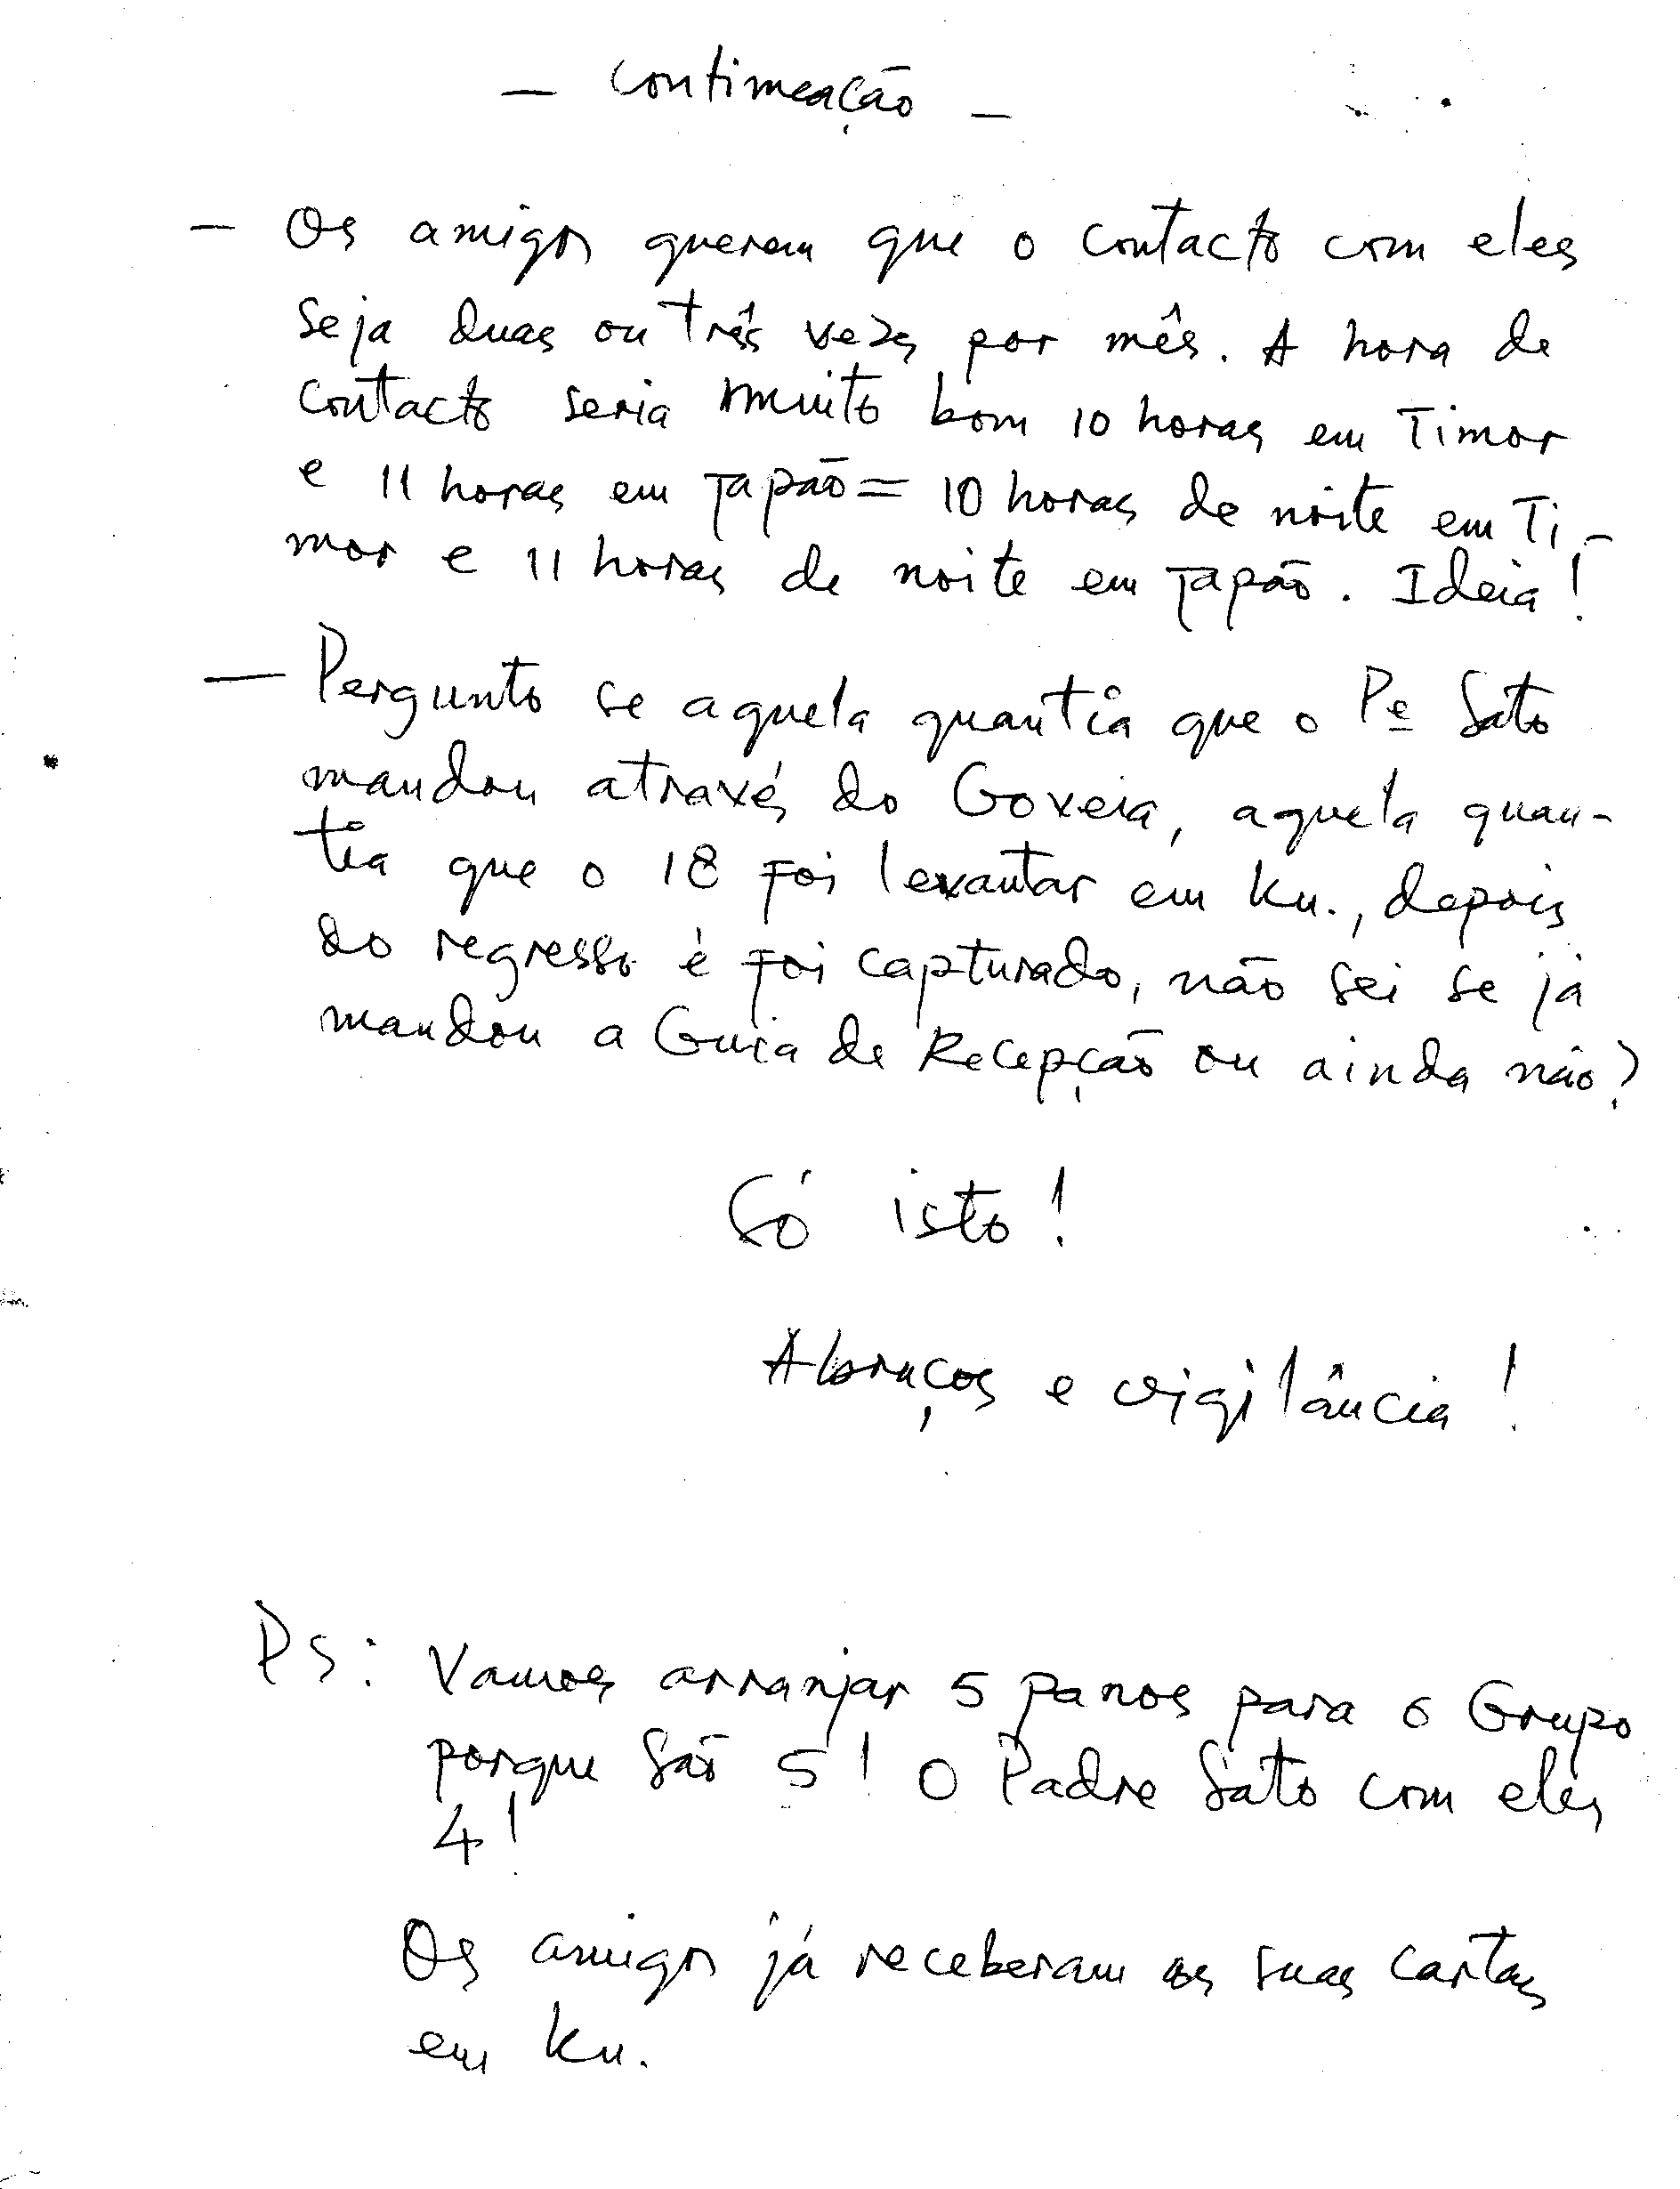 — Continuação —
— Os amigos querem que o contacto com eles
seja duas ou três vezes por mês. A hora de
contacto seria muito bom 10 horas em Timor
e 11 horas em Japão = 10 horas de noite em Ti-
mor e 11 horas de noite em Japão. Ideia!
— Pergunto se aquela quantia que o Pe Sato
mandou através do Goveia, aquela quan-
tia que o 18 foi levantar em Ku., depois
do regresso é foi capturado, não sei se já
mandou a Guia de Recepção ou ainda não?
Só isto!
Abraços e vigilância!
PS: Vamos arranjar 5 panos para o Grupo
porque são 5! O Padre Sato com eles
4!
Os amigos já receberam as suas cartas
em Ku.